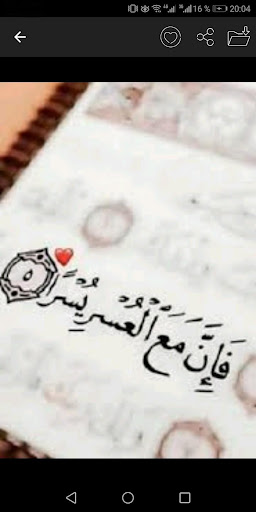 4G 3G 16 % 20:04
فَإِنَّ مَعَ الْعُسْرِ يُسْرًا ٥